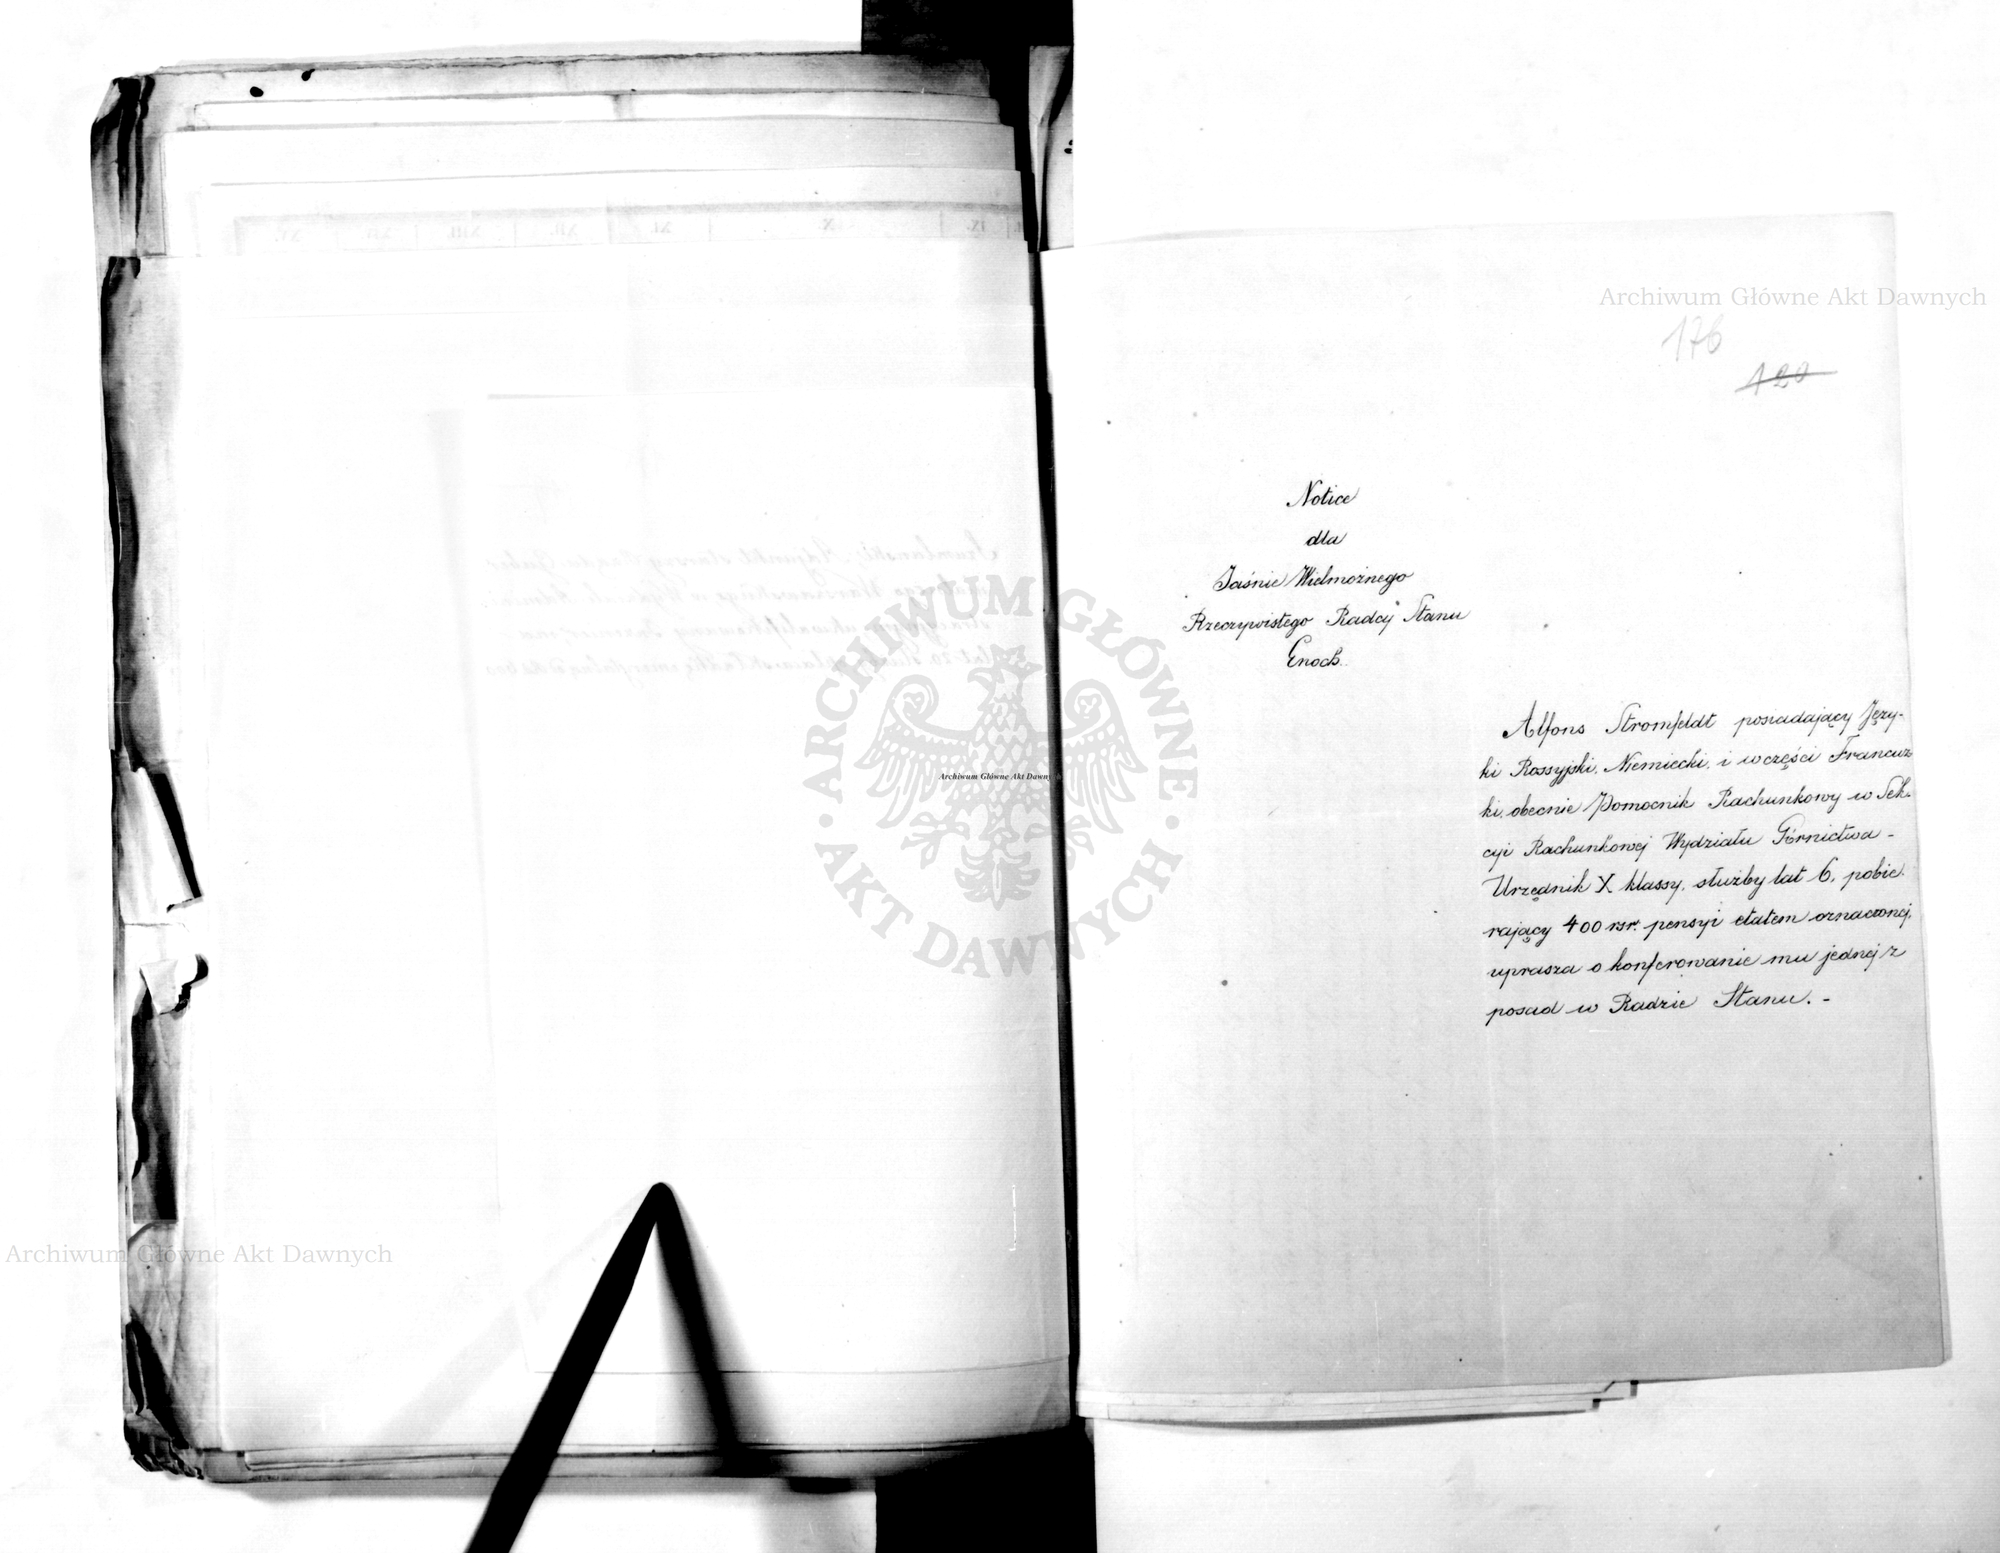 Archiwum Główne Akt Dawnych
176
120
Notice
dla
Jaśnie Wielmożnego
Rzeczywistego Radcy Stanu
Enoch.
Alfons Stromfeldt posiadający Języ-
ki Rossyjski, Niemiecki, i w części Francuz
ki, obecnie Pomocnik Rachunkowy w Sek-
cyi Rachunkowej Wydziału Górnictwa -
Urzędnik X klassy, służby lat 6, pobie.
rający 400 rsr. pensyi etatem oznaczonej,
uprasza o konferowanie mu jednej z
posad w Radzie Stanu. -
ARCHIWUM GŁÓWNE AKT DAWNYCH
Archiwum Główne Akt Dawnych
Archiwum Główne Akt Dawnych